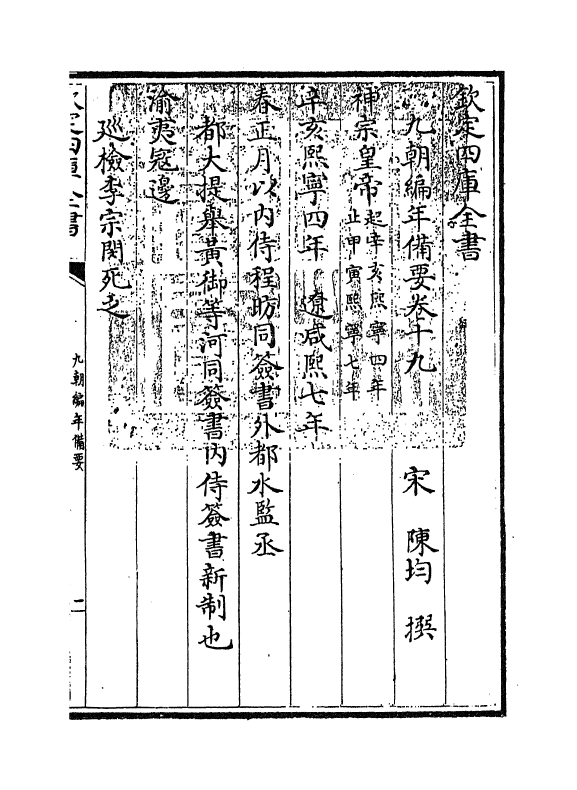 欽定四庫全書
九朝編年備要卷十九
宋 陳均 撰
神宗皇帝 起辛亥熙寧四年
止甲寅熙寧七年
辛亥熙寧四年 遼咸熙七年
春正月以内侍程昉同簽書外都水監丞
都大提舉黄御等河同簽書内侍簽書新制也
渝夷寇邊
廵檢李宗閔死之
欽定四庫全書
九朝編年備要
二